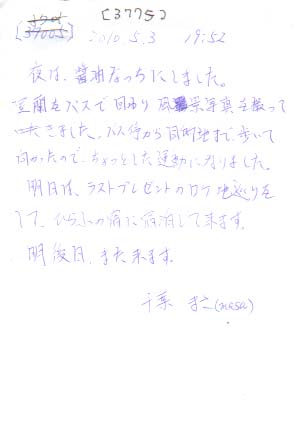 [3775]
2010.5.3 19:52
夜は、醤油なっちにしました。
室蘭をバスで回り風景写真を撮って
きました。バス停から目的地まで歩いて
向かったので、ちょっとした運動になりました。
明日は、ラストプレゼントのロケ地巡りを
して、ひらふの宿に宿泊して来ます。
明後日、また来ます。
千葉 まさ(masa)